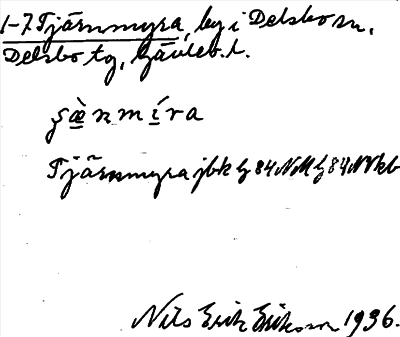 1-7 Tjärnmyra, by i Delsbo sn,
Delsbo tg, Gävleb. l.
ʂæ̀nmíra
Tjärnmyra jbk
Nils Erik Erikson 1936.